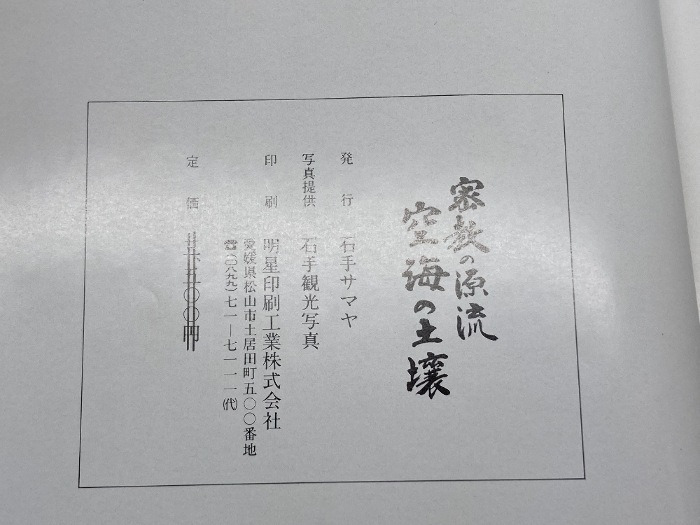 密教の源流
空海の土壌
発行 石手サマヤ
写真提供 石手観光写真
印刷 明星印刷工業株式会社
愛媛県松山市土居田町五〇〇番地
☎(〇八九九)七一―七一一一(代)
定価 五〇〇円